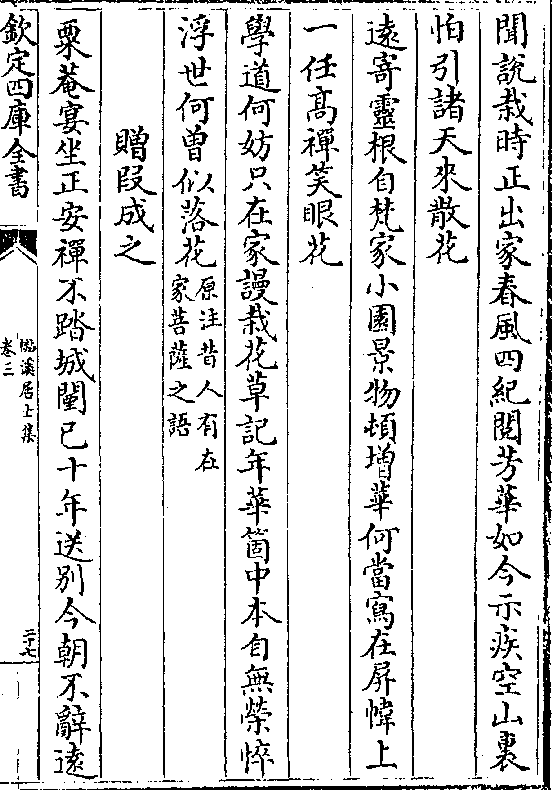 聞說栽時正出家春風四紀閱芳華如今示疾空山裏
怕引諸天來散花
遠寄靈根自梵家小園景物頓增華何當寫在屏幃上
一任高禪笑眼花
學道何妨只在家謾栽花草記年華箇中本自無榮悴
浮世何曾似落花原注昔人有在
家菩薩之語
贈段成之
粟菴宴坐正安禪不踏城闉已十年送別今朝不辭遠
欽定四庫全書
溪居士集
卷三
二十七